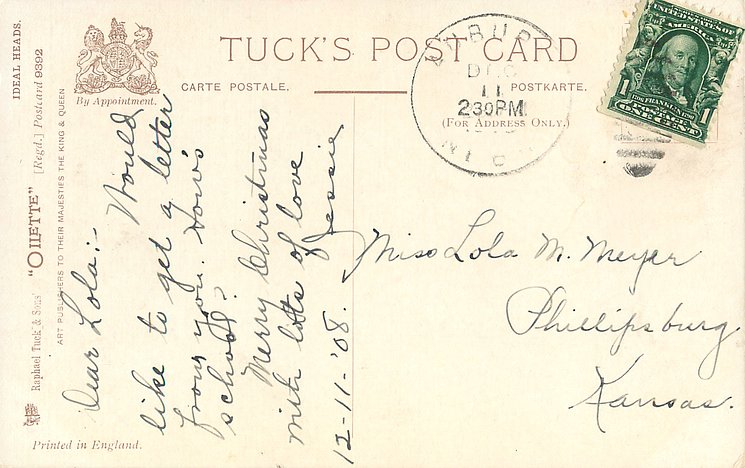 IDEAL HEADS.
[Regd.] Postcard 9392
Raphael Tuck & Sons' "OILETTE"
ART PUBLISHERS TO THEIR MAJESTIES THE KING & QUEEN
By Appointment.
TUCK'S POST CARD
CARTE POSTALE.
POSTKARTE.
(For Address Only.)
DEC
11
230PM
UNITED STATES OF
AMERICA
1 FRANKLIN 1
ONE CENT
Dear Lola:-
Would
like to get a letter
from you. How's
school?
Merry Christmas
with lots of love
Jessie
12-11-'08.
Miss Lola M. Meyer
Phillipsburg
Kansas.
Printed in England.